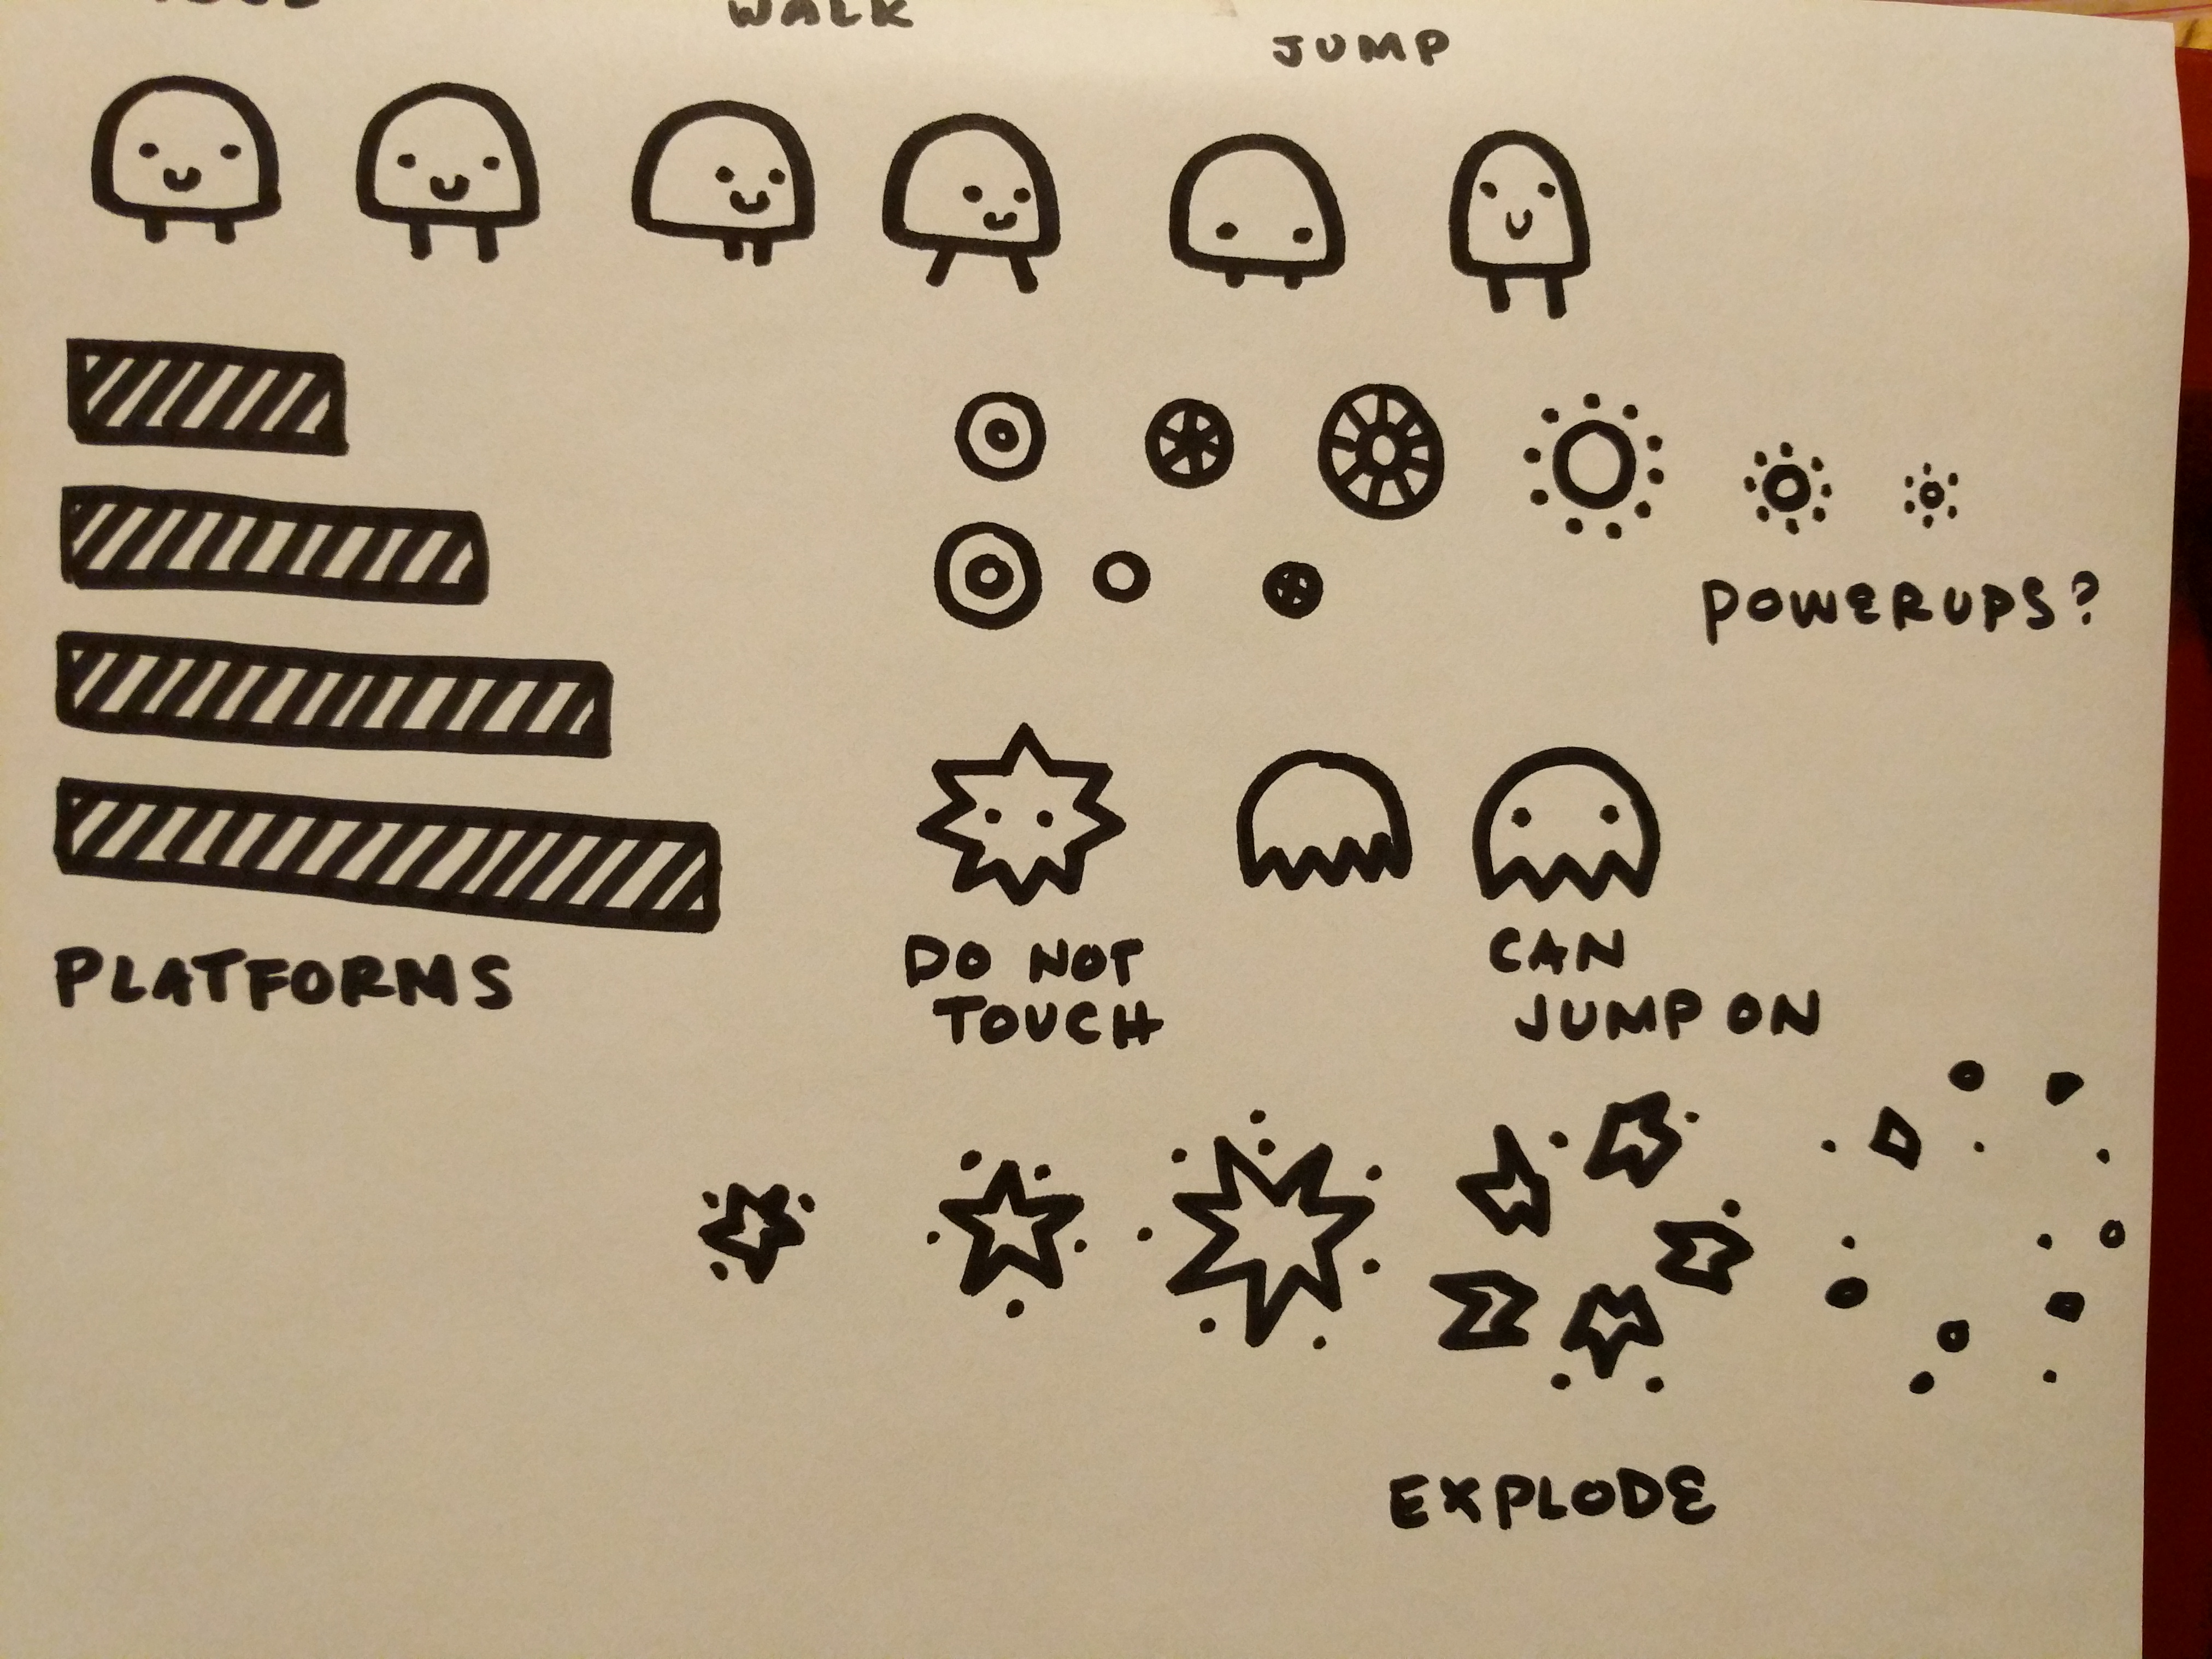 WALK
JUMP
POWERUPS?
PLATFORMS
DO NOT
TOUCH
CAN
JUMP ON
EXPLODE